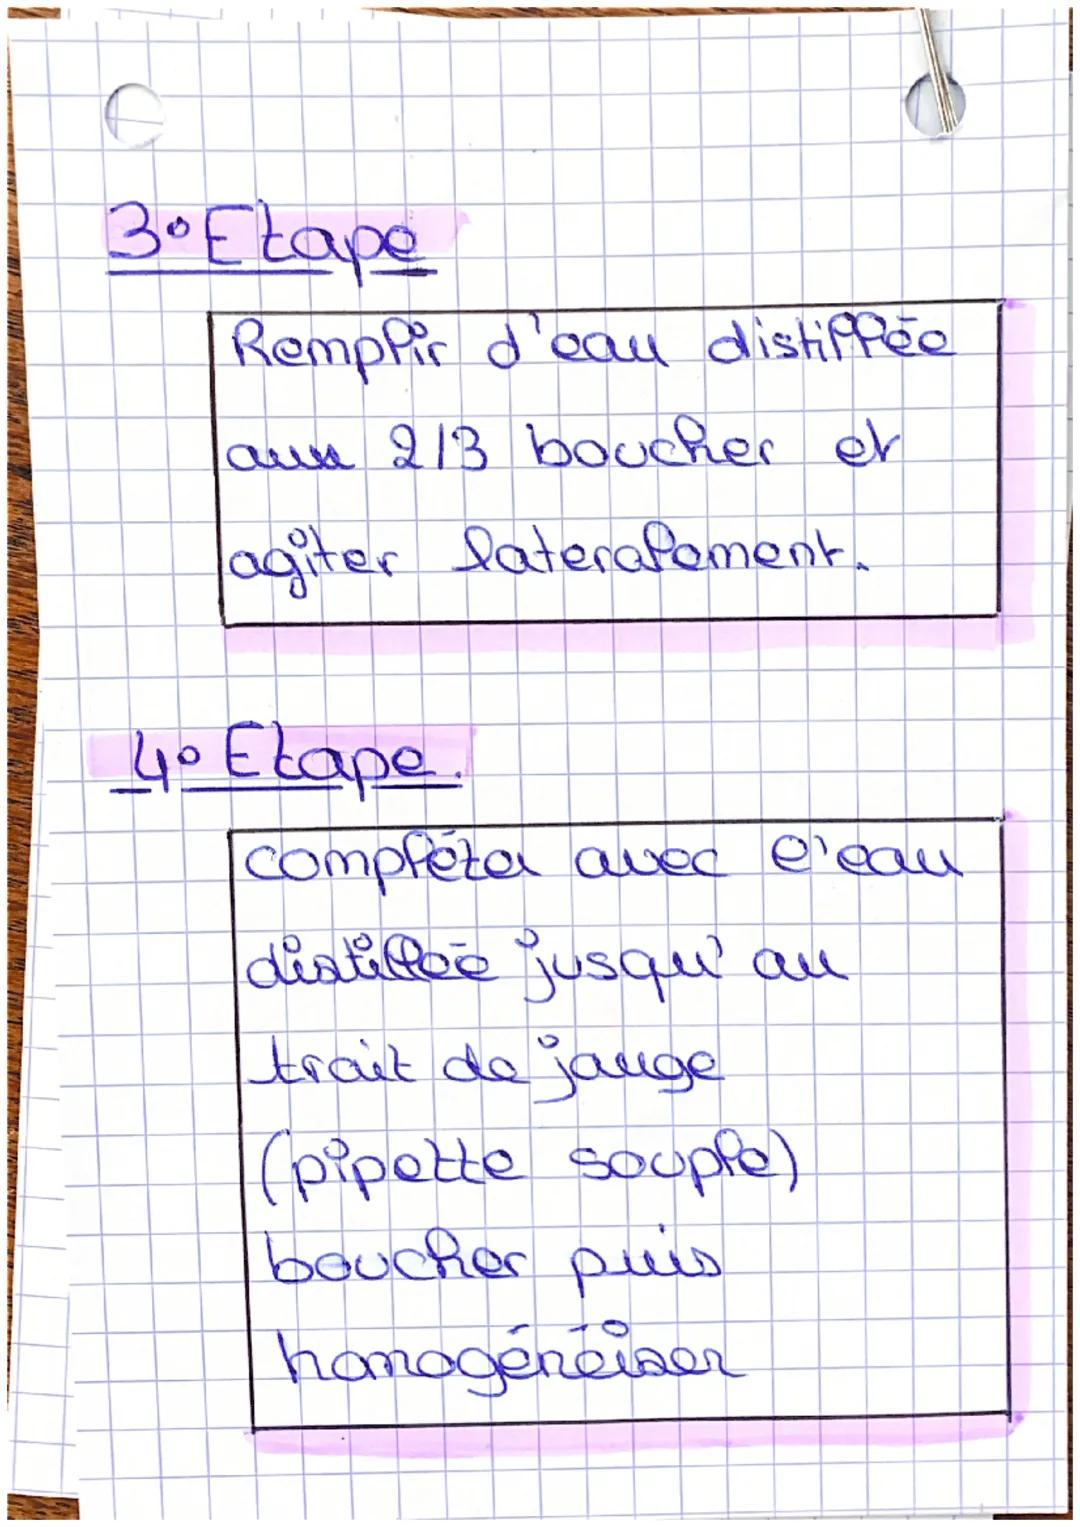 3° Etape
Remplir d'eau distillée
aux 2/3 boucher et
agiter lateralement.
4° Etape.
compléter avec l'eau
distillée jusqu'au
trait de jauge
(pipette souple)
boucher puis
homogénéiser